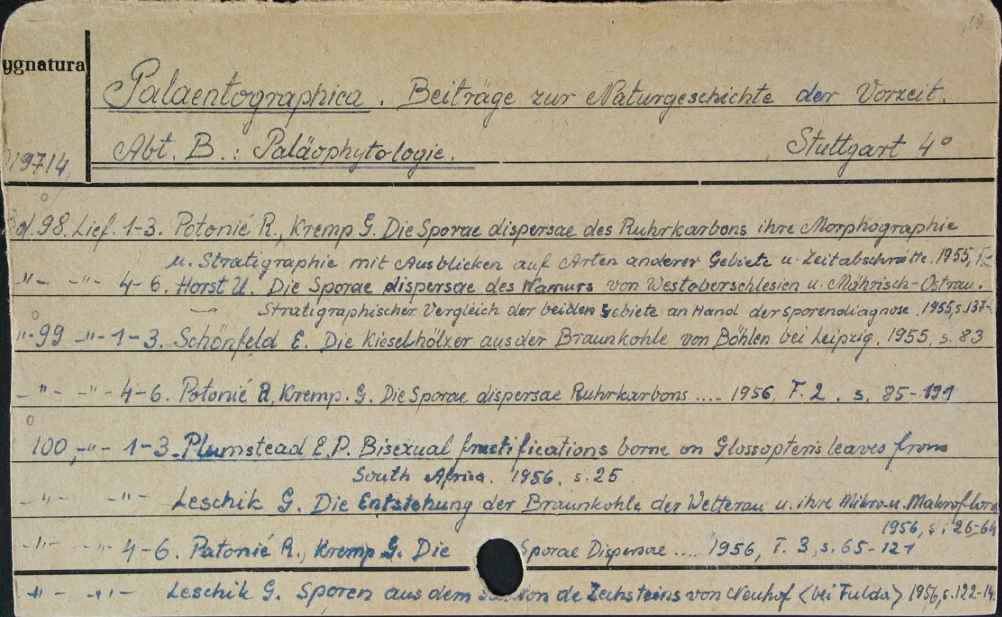 ygnatura
Palaentographica. Beiträge zur Naturgeschichte der Vorzeit.
Abt. B.: Paläophytologie. Stuttgart 4°
19714
Bd. 98. Lief. 1-3. Potonié R., Kremp G. Die Sporae dispersae des Ruhrkarbons ihre Morphographie
u. Stratigraphie mit Ausblicken auf Arten anderer Gebiete u. Zeitabschnitte. 1955,
-"- -"- 4-6. Horst U. Die Sporae dispersae des Namurs von Westoberschlesien u. Mährisch-Ostrau.
Stratigraphischer Vergleich der beiden Gebiete an Hand der sporendiagnose. 1955, s. 137-
-"- 99 -"- 1-3. Schönfeld E. Die Kieselhölzer aus der Braunkohle von Böhlen bei Leipzig. 1955, s. 83
-"- -"- 4-6. Potonié R, Kremp. G. Die Sporae dispersae Ruhrkarbons .... 1956, T. 2. s. 85-191
100, -"- 1-3. Plumstead E.P. Bisexual fructifications borne on Glossopteris leaves from
South Africa. 1956, s. 25
-"- -"- Leschik G. Die Entstehung der Braunkohle der Wetterau u. ihre Mikro u. Makroflora
1956, s. 26-64
-"- -"- 4-6. Patonié R., Kremp G. Die Sporae Dispersae .... 1956, T. 3, s. 65-121
-"- -"- Leschik G. Sporen aus dem von de Zechsteins von Neuhof (bei Fulda) 1956, s. 122-14